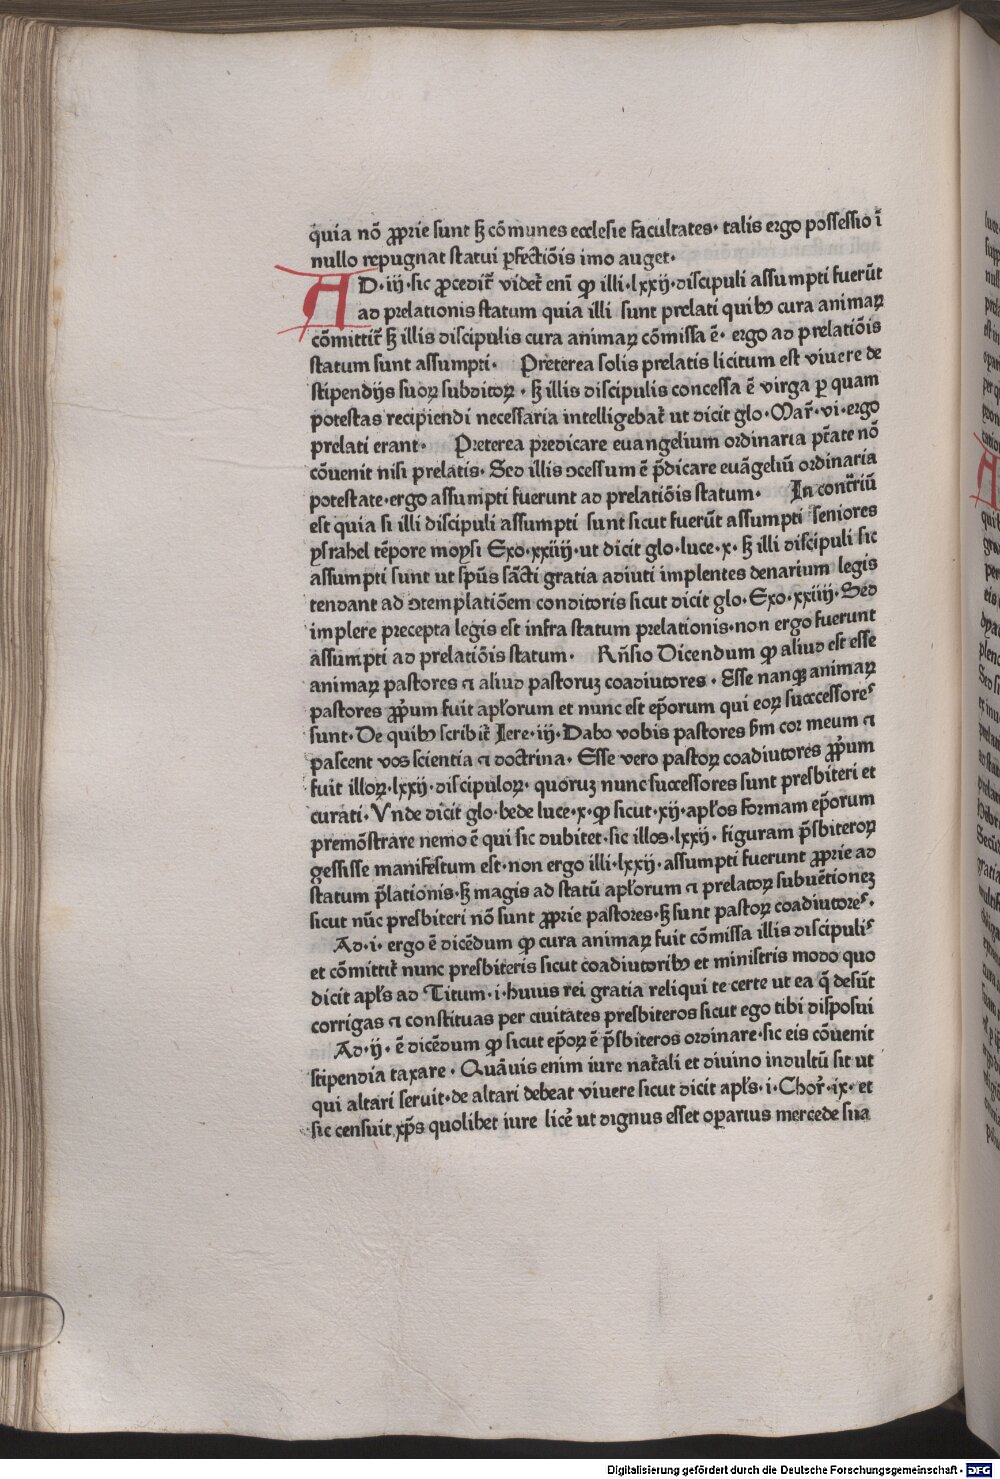 quia nō ꝓprie sunt sꝫ cōmunes ecclesie facultates· talis ergo possessio ī
nullo repugnat statui ꝑfectiōis imo auget·
AD·iij·sic ꝓcedit᷑ videt᷑ eni̅ ꝙ illi·lxxij·discipuli assumpti fuerūt
ad prelationis statum quia illi sunt prelati quibꝰ cura animaꝝ
cōmittit᷑ sꝫ illis discipulis cura animaꝝ cōmissa ē· ergo ad prelatiōis
statum sunt assumpti· Preterea solis prelatis licitum est viuere de
stipendijs suoꝝ subditoꝝ· sꝫ illis discipulis concessa ē virga ꝑ quam
potestas recipiendi necessaria intelligebat᷑ ut dicit glo·Mar̃·vi·ergo
prelati erant· Preterea predicare euangelium ordinaria pt̄ate nō
cōuenit nisi prelatis· Sed illis ↄcessum ē p̄dicare euāgeliū ordinaria
potestate·ergo assumpti fuerunt ad prelatiōis statum· In cont̄riū
est quia si illi discipuli assumpti sunt sicut fuerūt assumpti seniores
ysrahel tēpore moysi Exo·xxiiij·ut dicit glo·luce·x·sꝫ illi discipuli sic
assumpti sunt ut sp̄us sācti gratia adiuti implentes denarium legis
tendant ad ↄtemplatiōem conditoris sicut dicit glo·Exo·xxiiij·Sed
implere precepta legis est infra statum prelationis·non ergo fuerunt
assumpti ad prelatiōis statum· Rn̄sio Dicendum ꝙ aliud est esse
animaꝝ pastores ⁊ aliud pastoruꝫ coadiutores· Esse nanqꝫ animaꝝ
pastores ꝓp̄um fuit apl̄orum et nunc est ep̄orum qui eoꝝ successores
sunt· De quibꝰ scribit᷑ Iere·iij·Dabo vobis pastores s̄m cor meum ⁊
pascent vos scientia ⁊ doctrina· Esse vero pastoꝝ coadiutores ꝓp̄um
fuit illoꝝ·lxxij·discipuloꝝ· quoruꝫ nunc successores sunt presbiteri et
curati· Vnde dicit glo·bede luce·x·ꝙ sicut·xij·apl̄os formam ep̄orum
premōstrare nemo ē qui sic dubitet·sic illos·lxxij· figuram p̄sbiteroꝝ
gessisse manifestum est·non ergo illi·lxxij·assumpti fuerunt ꝓprie ad
statum p̄lationis·sꝫ magis ad statū apl̄orum ⁊ prelatoꝝ subuētioneꝫ
sicut nūc presbiteri nō sunt ꝓprie pastores·sꝫ sunt pastoꝝ coadiutores·
Ad·i·ergo ē dicēdum ꝙ cura animaꝝ fuit cōmissa illis discipulis
et cōmittit᷑ nunc presbiteris sicut coadiutoribꝰ et ministris modo quo
dicit apl̄s ad Titum·i·huius rei gratia reliqui te certe ut ea q̄ desūt
corrigas ⁊ constituas per ciuitates presbiteros sicut ego tibi disposui
Ad·ij·ē dicēdum ꝙ sicut ep̄oꝝ ē p̄sbiteros ordinare·sic eis cōuenit
stipendia taxare· Quāuis enim iure nat̄ali et diuino indultū sit ut
qui altari seruit·de altari debeat viuere sicut dicit apl̄s·i·Chor̃·ix·et
sic censuit xp̄s quolibet iure lice᷑ ut dignus esset oꝑarius mercede sua
Digitalisierung gefördert durch die Deutsche Forschungsgemeinschaft · DFG